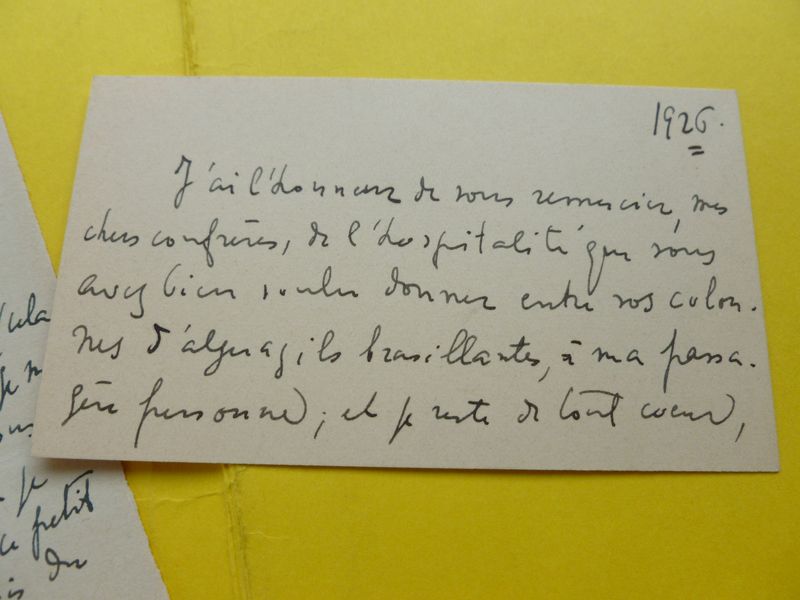 1926.
J'ai l'honneur de vous remercier, mes
chers confrères, de l'hospitalité que vous
avez bien voulu donner entre vos colon-
nes d'alguazils brasillantes, à ma passa-
gère personne ; et je reste de tout coeur,
je
petit
du